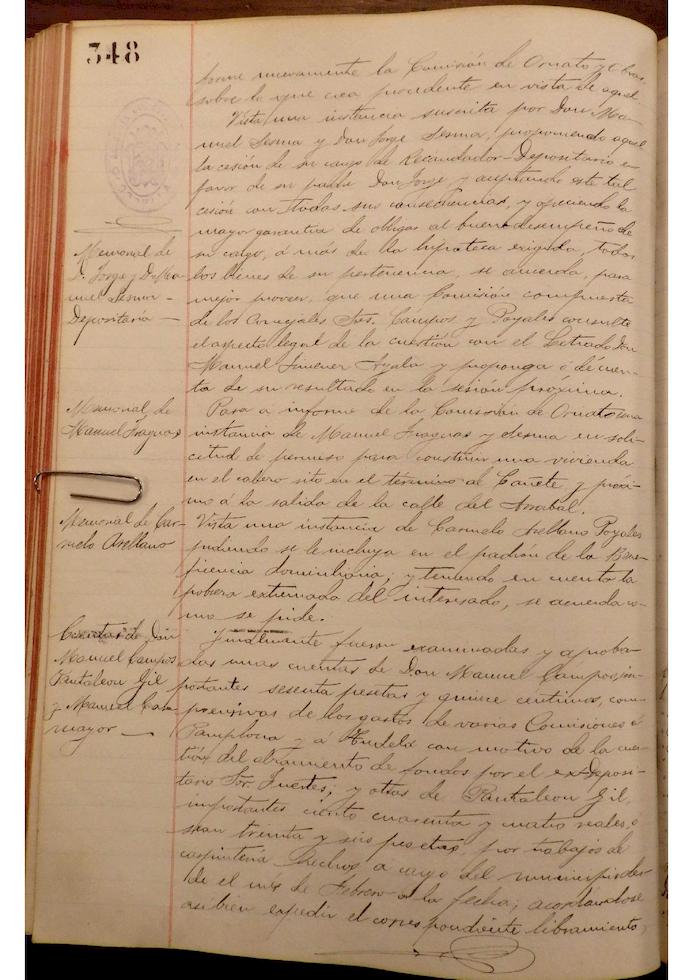 348
forme nuevamente la Comisión de Ornato y Obras
sobre lo que crea procedente en vista de aquel.
Vista una instancia suscrita por Don Ma-
nuel Sesma y Don Jorge Sesma, proponiendo aquel
la cesión de su cargo de Recaudador-Depositario en
favor de su padre Don Jorge y aceptando este tal
cesión con todas sus consecuencias, y ofreciendo la
mayor garantía de obligar al buen desempeño de
su cargo, á más de la hipoteca exigida, todos
los bienes de su pertenencia, se acuerda, para
mejor proveer, que una Comisión compuesta
de los Concejales Sres. Campos y Poyales consulte
el aspecto legal de la cuestión con el Letrado Don
Manuel Jimenez Ayala y proponga ó dé cuen-
ta de su resultado en la sesión próxima.
Memorial de
D. Jorge y D. Ma-
nuel Sesma -
Depositaría -
Pasa a informe de la Comisión de Ornato una
instancia de Manuel Fraguas y Sesma en soli-
citud de permiso para construir una vivienda
en el cabezo sito en el término de Cañete y próxi-
mo á la salida de la calle del Arrabal.
Memorial de
Manuel Fraguas
Vista una instancia de Carmelo Arellano Poyales
pidiendo se le incluya en el padrón de la Bene-
ficencia domiciliaria; y teniendo en cuenta la
pobreza extremada del interesado, se acuerda co-
mo se pide.
Memorial de Car-
melo Arellano
Finalmente fueron examinadas y aproba-
das unas cuentas de Don Manuel Campos, im-
portantes sesenta pesetas y quince centimos, com-
prensivas de los gastos de varias Comisiones á
Pamplona y á Tudela con motivo de la cues-
tión del alzamiento de fondos por el ex-Deposi-
tario Sor. Fuertes; y otras de Pantaleon Gil,
importantes ciento cuarenta y cuatro reales, ó
sean treinta y seis pesetas, por trabajos de
carpintería hechos a cargo del municipio des-
de el mes de Febrero a la fecha; acordándose
asi bien expedir el correspondiente libramiento,
Cuentas de Don
Manuel Campos
Pantaleon Gil
y Manuel Cala-
mayor -